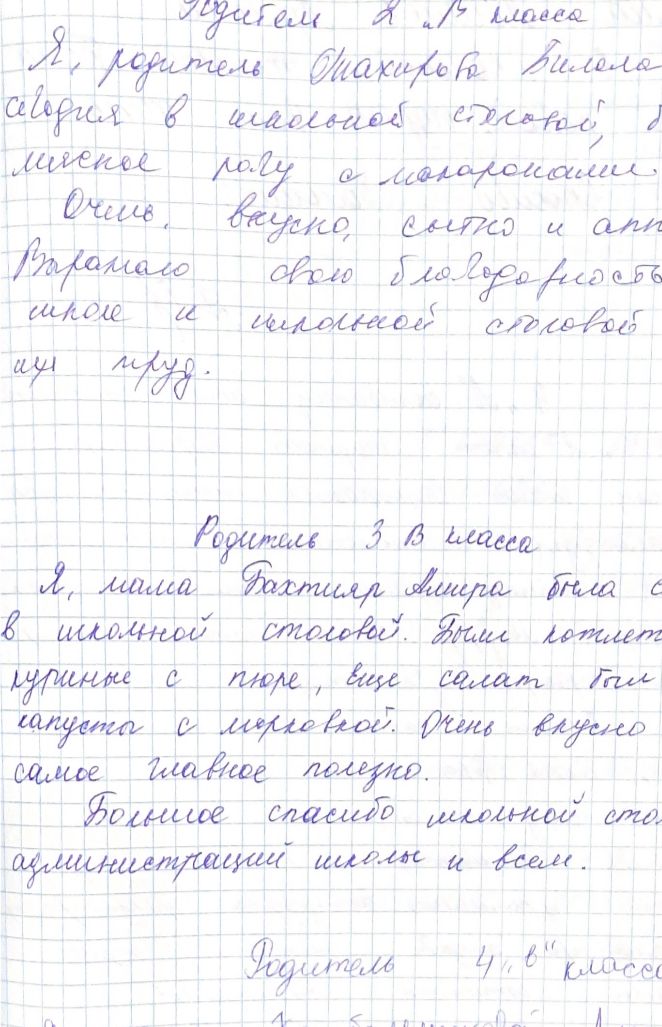 Родители 2 „В" класса
Я, родитель Шахирова Билала
сегодня в школьной столовой,
мясное рагу с макаронами.
Очень вкусно, сытно и апп
Выражаю свою благодарность
школе и школьной столовой
их труд.
Родитель 3 В класса
Я, мама Бахтияр Амира была с
в школьной столовой. Были котлет
куриные с пюре, еще салат был
капусты с морковкой. Очень вкусно
самое главное полезно.
Большое спасибо школьной сто
администраций школы и всем.
Родитель 4 „в" класса